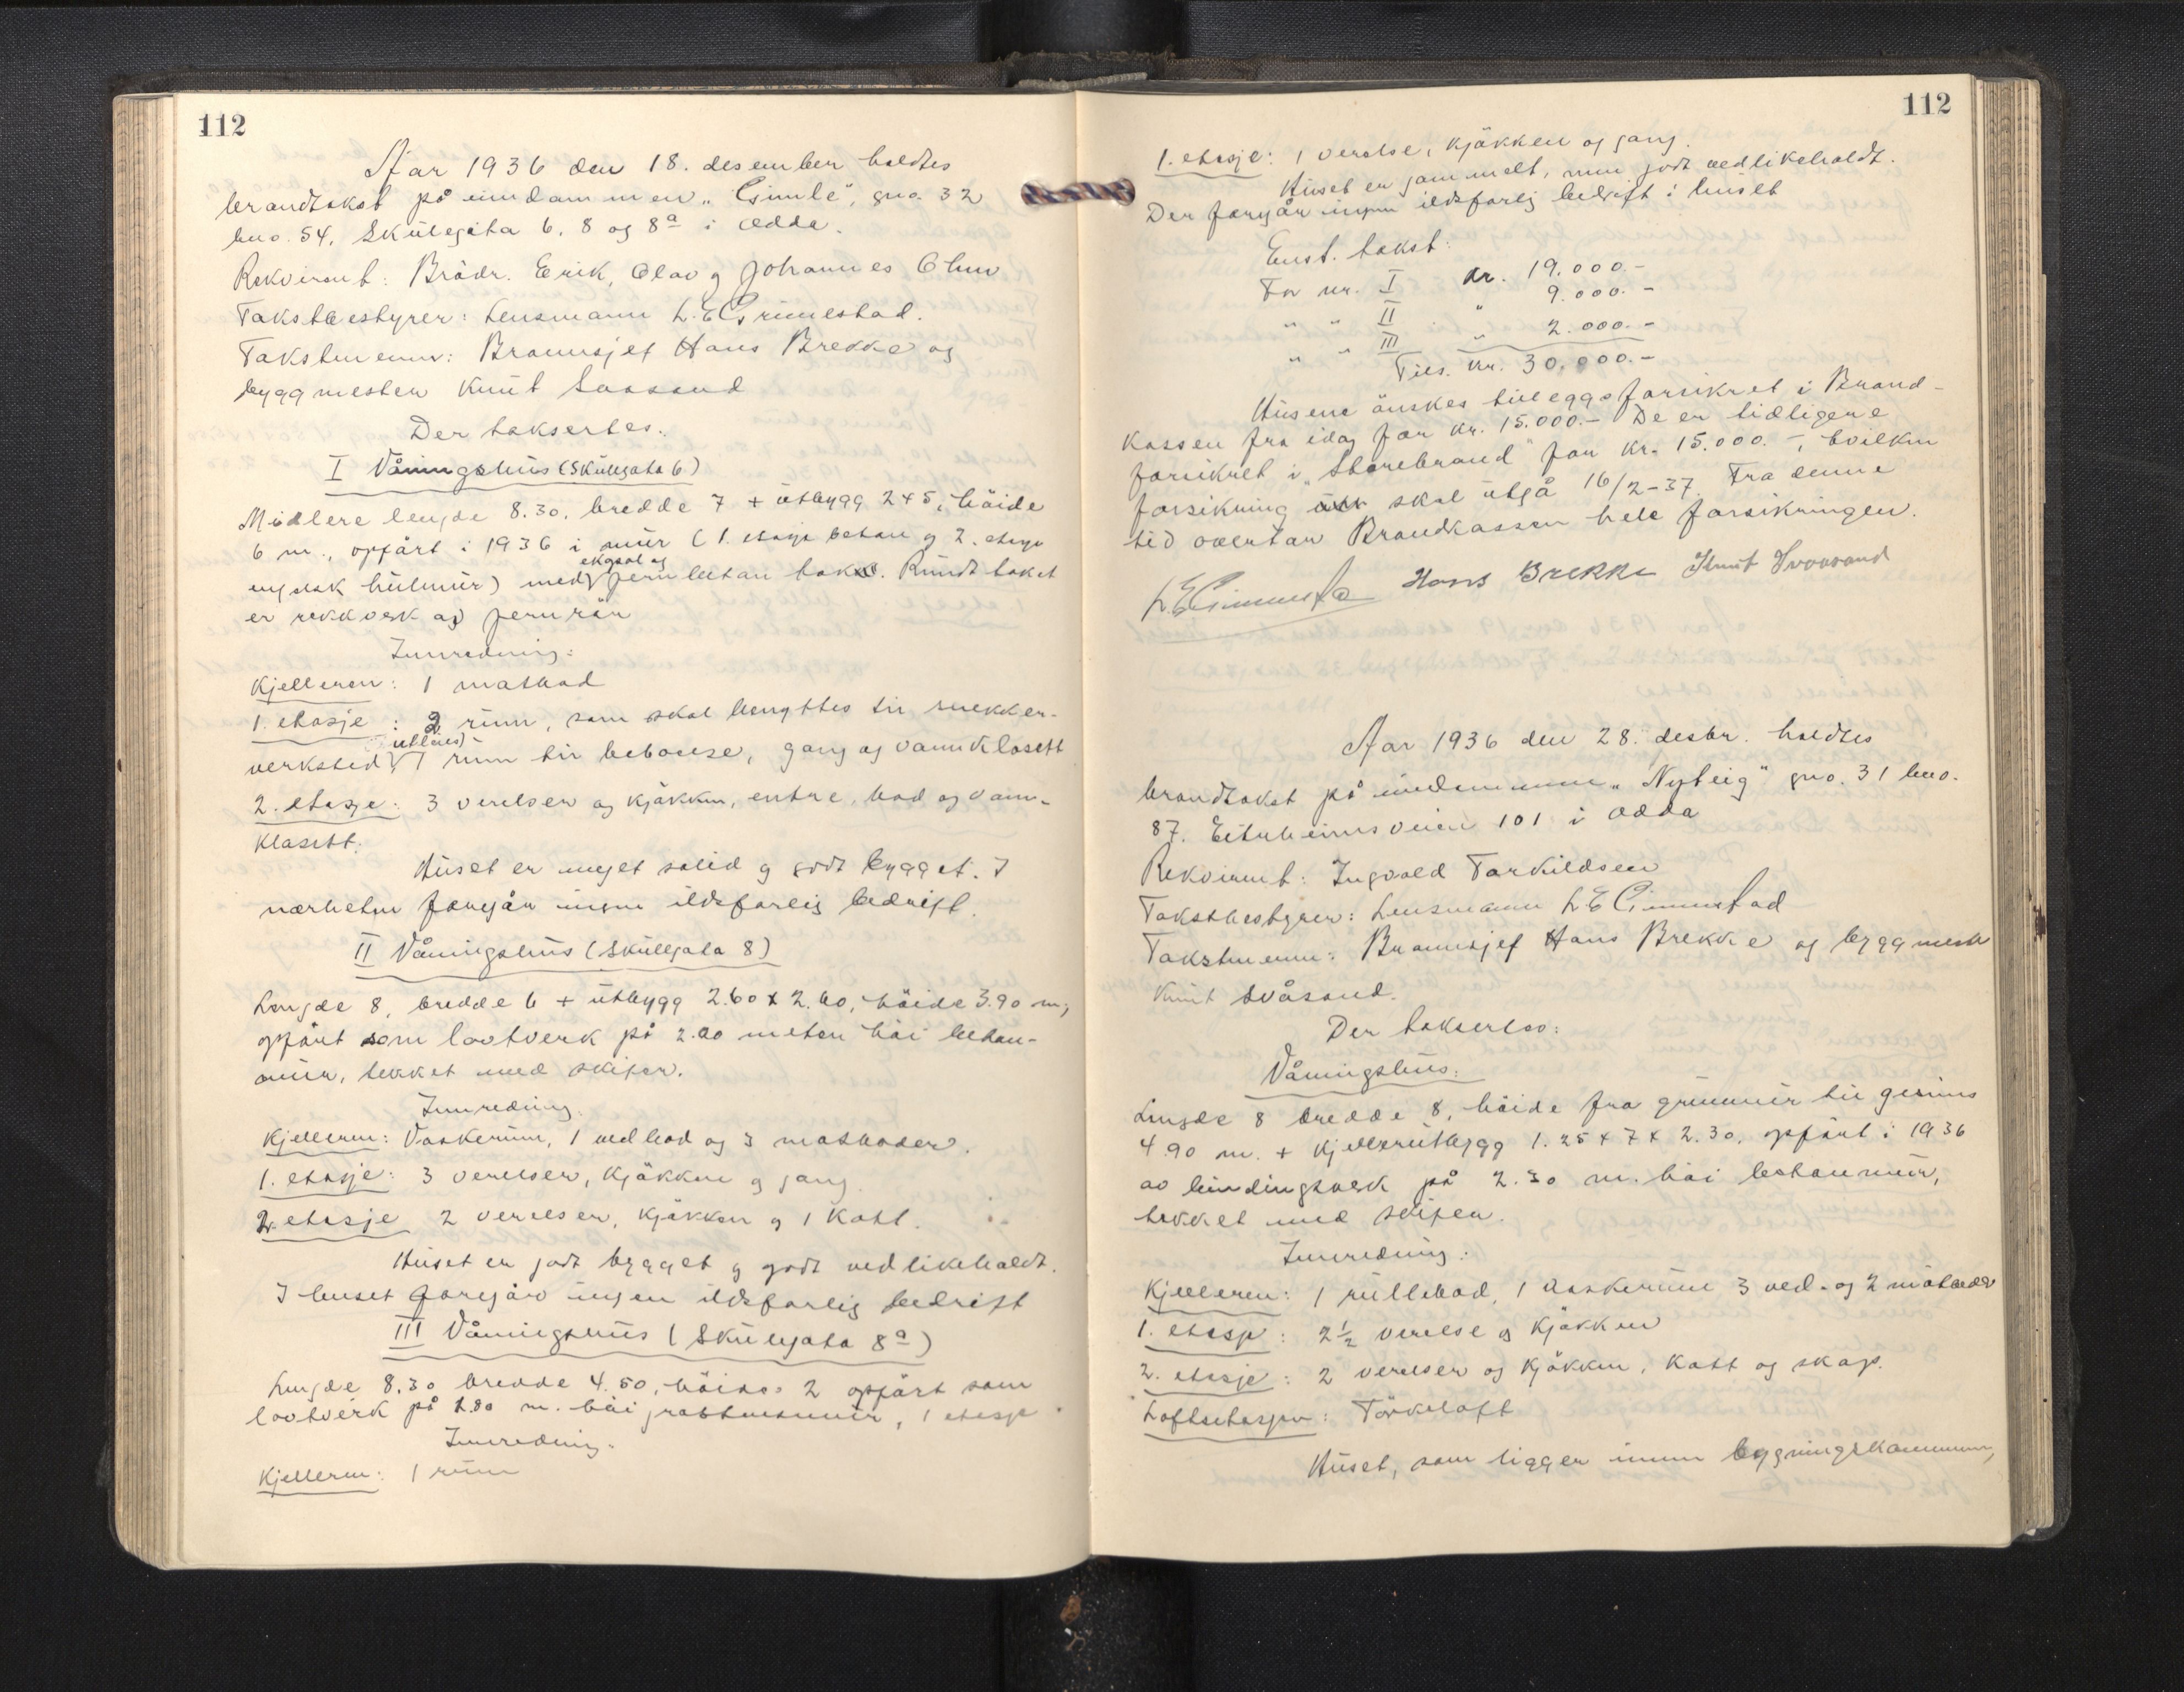 112
Aar 1936 den 18. desember holdtes
brandtakst på eiendommen "Gimle", gno. 32
bno. 54, Skulegata 6, 8 og 8a i Odda.
Rekvirent: Brødr. Erik, Olav og Johannes
Takstbestyrer: Lensmann L. E. Grimestad.
Takstmenn: Brannsjef Hans Brekke og
byggmester Knut
Der takseres:
I Våningshus (Skulegata 6)
Midlere lengde 8.30, bredde 7 + utbygg 2+5, höide
6 m., opfört i 1936 i mur (1. etasje betong og 2. etasje
engelsk hulmur) med jernbetong tak. Rundt taket
er rekkverk av jernrör
Innredning:
Kjelleren: 1 matbod
1. etasje: 2 rum, som skal benyttes til snekker-
verksted, 1 rum til beboelse, gang og vannklosett
2. etasje: 3 verelser og kjökken, entre, bad og vann-
klosett.
Huset er meget solid og godt bygget. I
nærheten foregår ingen ildsfarlig bedrift.
II Våningshus (Skulegata 8)
Lengde 8, bredde 6 + utbygg 2.60 x 2.60, höide 3.90 m,
opfört som lavtverk på 2.20 meter höi betong-
mur, tekket med skifer.
Innredning.
Kjelleren: Vaskerum, 1 vedbod og 3 matboder.
1. etasje: 3 verelser, kjökken og gang.
2. etasje 2 verelser, kjökken og 1 kott.
Huset er godt bygget og godt vedlikeholdt.
I huset foregår ingen ildsfarlig bedrift
III Våningshus (Skulegata 8a)
Lengde 8.30 bredde 4.50, höide 2 opfört som
lavtverk på m. höi 1 etasje
Innredning.
Kjelleren: 1 rum
112
1. etasje: 1 verelse, kjökken og gang.
Huset er gammelt, men godt vedlikeholdt.
Der foregår ingen ildsfarlig bedrift i huset
Enst. takst:
For nr. I kr. 19.000.-
" " II " 9.000.-
" " III " 2.000.-
Tils. kr. 30.000.-
Husene önskes tilleggsforsikret i Brand-
kassen fra idag for kr. 15.000.- De er tidligere
forsikret i "Storebrand" for kr. 15.000.-, hvilken
forsikring skal utgå 16/2-37. Fra denne
tid overtar Brandkassen hele forsikringen.
L. E. Grimestad Hans Brekke Knut Svåsand
Aar 1936 den 28. desbr. holdtes
brandtakst på eiendommen "Nyteig" gno. 31 bno.
87. Eitrheimsveien 101 i Odda
Rekvirent: Ingvald Torkildsen
Takstbestyrer: Lensmann L. E. Grimestad
Takstmenn: Brannsjef Hans Brekke og byggmester
Knut Svåsand.
Der takseres:
Våningshus:
Lengde 8 bredde 8, höide fra grunnmur til gesims
4.90 m. + kjellerutbygg 1.25 x 7 x 2.30, opfört i 1936
av bindingsverk på 2.30 m. höi betongmur,
tekket med skifer.
Innredning:
Kjelleren: 1 rullebod, 1 vaskerum 3 ved- og 2 matboder
1. etasje: 2½ verelse og kjökken
2. etasje: 2 verelser og kjökken, kott og skap.
Loftsetasjen: Törkeloft
Huset, som ligger innen bygningskommunen,